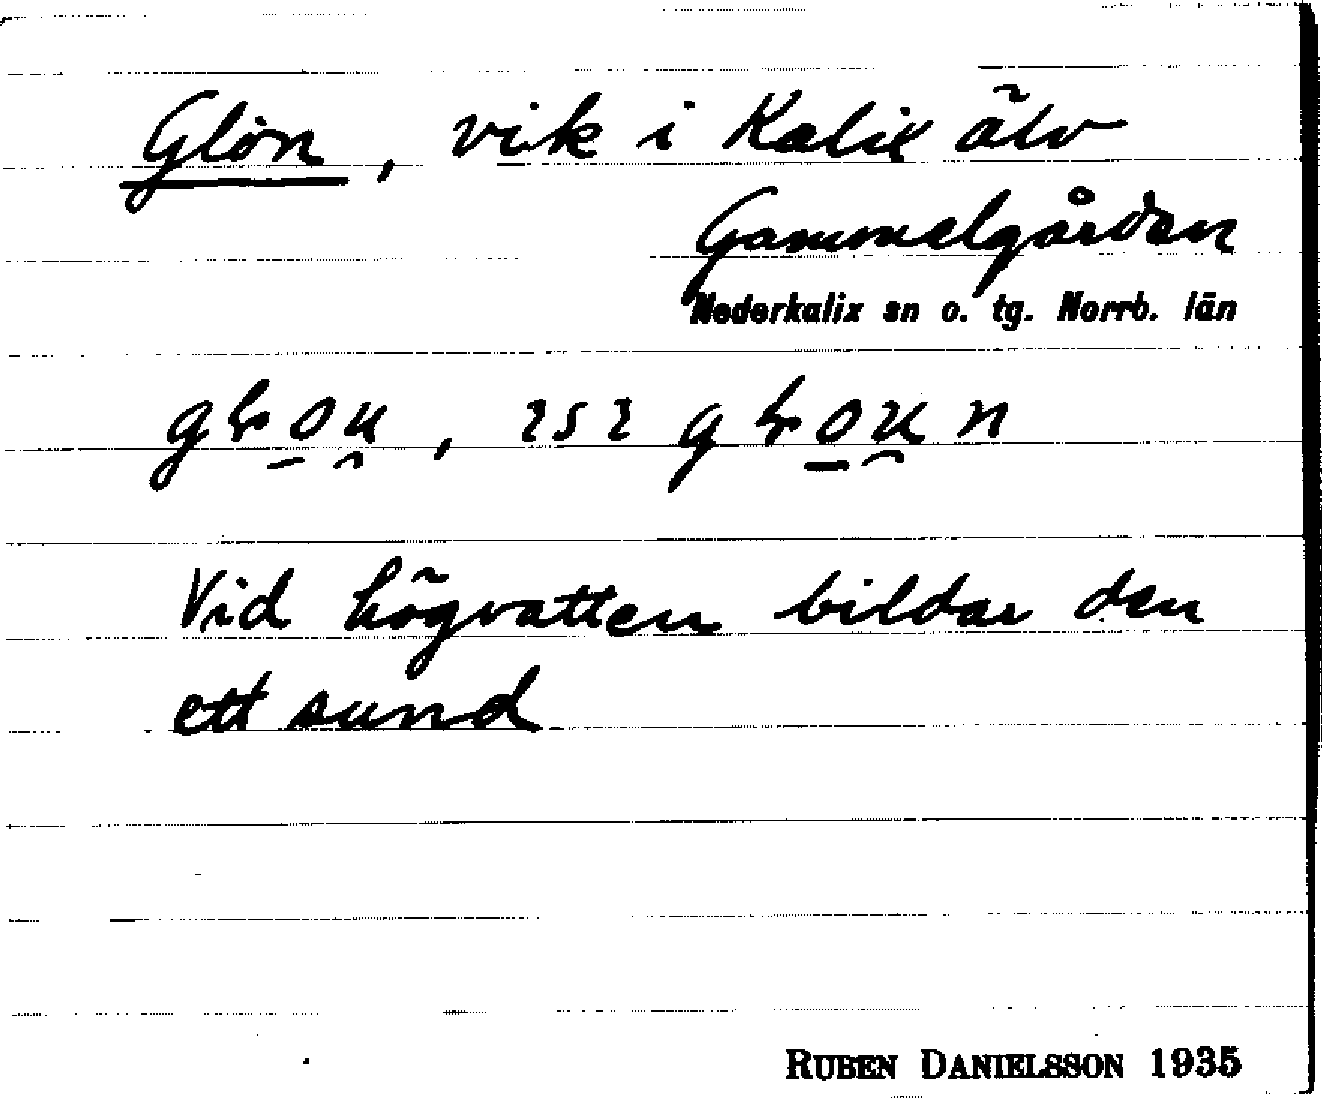 Glön, vik i Kalix älv
Gammelgården
Nederkalix sn o. tg. Norrb. län
Vid högvatten bildar den
ett sund
RUBEN DANIELSSON 1935